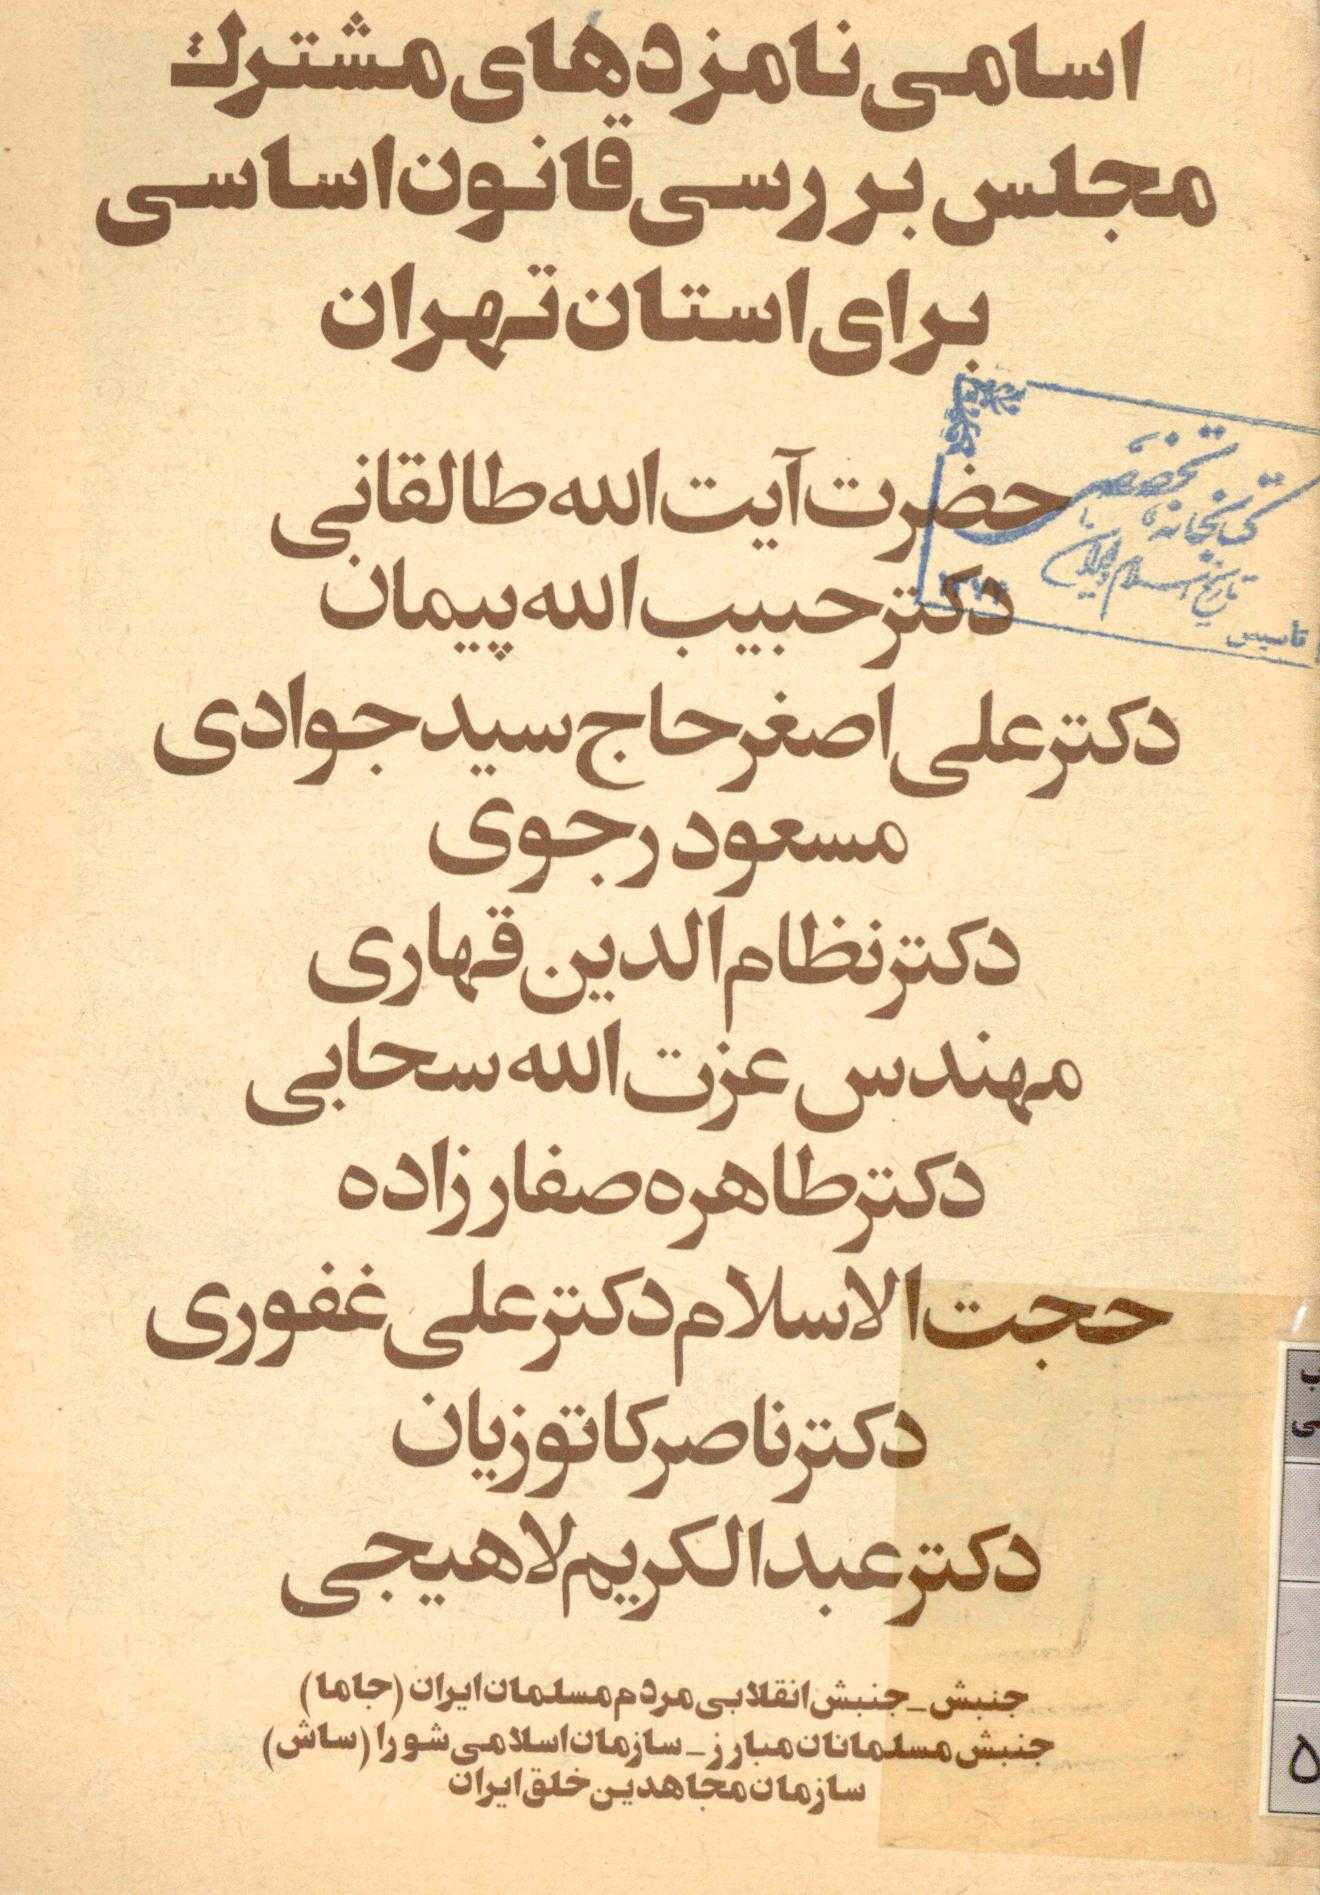 اسامی نامزدهای مشترک
مجلس بررسی قانون اساسی
برای استان تهران
حضرت آیت الله طالقانی
دکتر حبیب الله پیمان
دکتر علی اصغر حاج سید جوادی
مسعود رجوی
دکتر نظام الدین قهاری
مهندس عزت الله سحابی
دکتر طاهره صفارزاده
حجت الاسلام دکتر علی غفوری
دکتر ناصر کاتوزیان
دکتر عبدالکریم لاهیجی
جنبش _ جنبش انقلابی مردم مسلمان ایران (جاما)
جنبش مسلمانان مبارز _ سازمان اسلامی شورا (ساش)
سازمان مجاهدین خلق ایران
کتابخانه تخصصی
تاریخ اسلام و ایران
تاسیس
۵